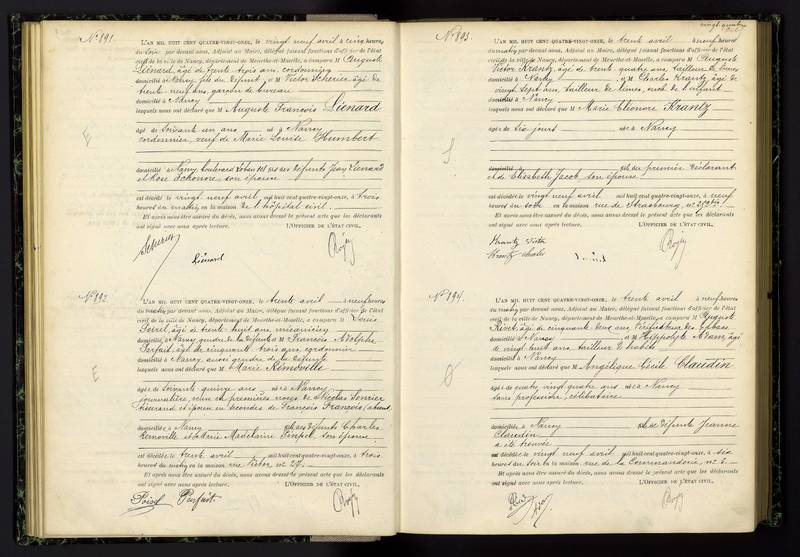 N° 891
L'AN MIL HUIT CENT QUATRE-VINGT-ONZE, le vingt neuf avril à cinq heures,
du soir par devant nous, Adjoint au Maire, délégué faisant fonctions d'officier de l'état
civil de la ville de Nancy, département de Meurthe-et-Moselle, a comparu M Auguste
Liénard, âgé de trente trois ans, cordonnier
domicilié à Nancy, fils du défunt, et M Victor âgé de
trente neuf ans, garçon de bureau
domicilié à Nancy
lesquels nous ont déclaré que M Auguste François Liénard
âgé de soixante un ans né à Nancy
cordonnier, veuf de Marie Louise Humbert
domicilié à Nancy, boulevard Lobau fils des défunts Jean Liénard
et Rose son épouse
est décédé le vingt neuf avril mil huit cent quatre-vingt-onze, à trois
heures du en la maison de l'hôpital civil.
Et après nous être assuré du décès, nous avons dressé le présent acte que les déclarants
ont signé avec nous après lecture. L'OFFICIER DE L'ÉTAT CIVIL,
Liénard
N° 892
L'AN MIL HUIT CENT QUATRE-VINGT-ONZE, le trente avril à neuf heures
du matin par devant nous, Adjoint au Maire, délégué faisant fonctions d'officier de l'état
civil de la ville de Nancy, département de Meurthe-et-Moselle, a comparu M Louis
âgé de trente huit ans, mécanicien
domicilié à Nancy, gendre de la défunte et M François Adolphe
Parfait, âgé de cinquante trois ans, cordonnier
domicilié à Nancy, aussi gendre de la défunte
lesquels nous ont déclaré que M Marie Rémoville
âgée de soixante quinze ans née à Nancy
journalière, veuve en premières noces de Nicolas
et épouse en secondes de François François, absent
domiciliée à Nancy fille des défunts Charles
Rémoville et Marie Madeleine son épouse
est décédée le trente avril mil huit cent quatre-vingt-onze, à trois
heures du matin en la maison rue n° 27.
Et après nous être assuré du décès, nous avons dressé le présent acte que les déclarants
ont signé avec nous après lecture. L'OFFICIER DE L'ÉTAT CIVIL,
Parfait
vingt quatre
N° 893.
L'AN MIL HUIT CENT QUATRE-VINGT-ONZE, le trente avril à neuf heures
du matin par devant nous, Adjoint au Maire, délégué faisant fonctions d'officier de l'état
civil de la ville de Nancy, département de Meurthe-et-Moselle, a comparu M Auguste
Victor Krantz, âgé de trente quatre ans, tailleur de limes
domicilié à Nancy, et M Charles Krantz, âgé de
vingt sept ans, tailleur de limes, oncle de l'enfant
domicilié à Nancy
lesquels nous ont déclaré que M Marie Eléonore Krantz
âgée de dix jours née à Nancy
domicilié à fille du premier déclarant
et de Elisabeth Jacob, son épouse
est décédée le vingt neuf avril mil huit cent quatre-vingt-onze, à neuf
heures du soir en la maison rue de Strasbourg, n°
Et après nous être assuré du décès, nous avons dressé le présent acte que les déclarants
ont signé avec nous après lecture. L'OFFICIER DE L'ÉTAT CIVIL,
Krantz Victor
Krantz Charles
N° 894.
L'AN MIL HUIT CENT QUATRE-VINGT-ONZE, le trente avril à neuf heures
du matin par devant nous, Adjoint au Maire, délégué faisant fonctions d'officier de l'état
civil de la ville de Nancy, département de Meurthe-et-Moselle, a comparu M Auguste
âgé de cinquante deux ans, vérificateur des tabacs
domicilié à Nancy, et M Hippolyte Adam, âgé
de vingt huit ans, tailleur d'habits
domicilié à Nancy
lesquels nous ont déclaré que M Angélique Cécile Claudin
âgée de quatre vingt quatre ans née à Nancy
sans profession, célibataire
domiciliée à Nancy fille de défunte Jeanne
Claudin
a été trouvée
décédée le vingt neuf avril mil huit cent quatre-vingt-onze, à six
heures du soir en la maison rue de la Commanderie, n° 3
Et après nous être assuré du décès, nous avons dressé le présent acte que les déclarants
ont signé avec nous après lecture. L'OFFICIER DE L'ÉTAT CIVIL,